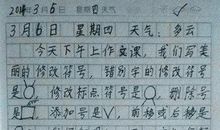 2014 3月6日 星期四 天气
3月6日 星期四 天气：多云
今天下午上作文课，我们写美
丽的修改符号，错别字的修改符号
是 修改标点符号是 ，删除号
是 添加号是∨，前移或后移是